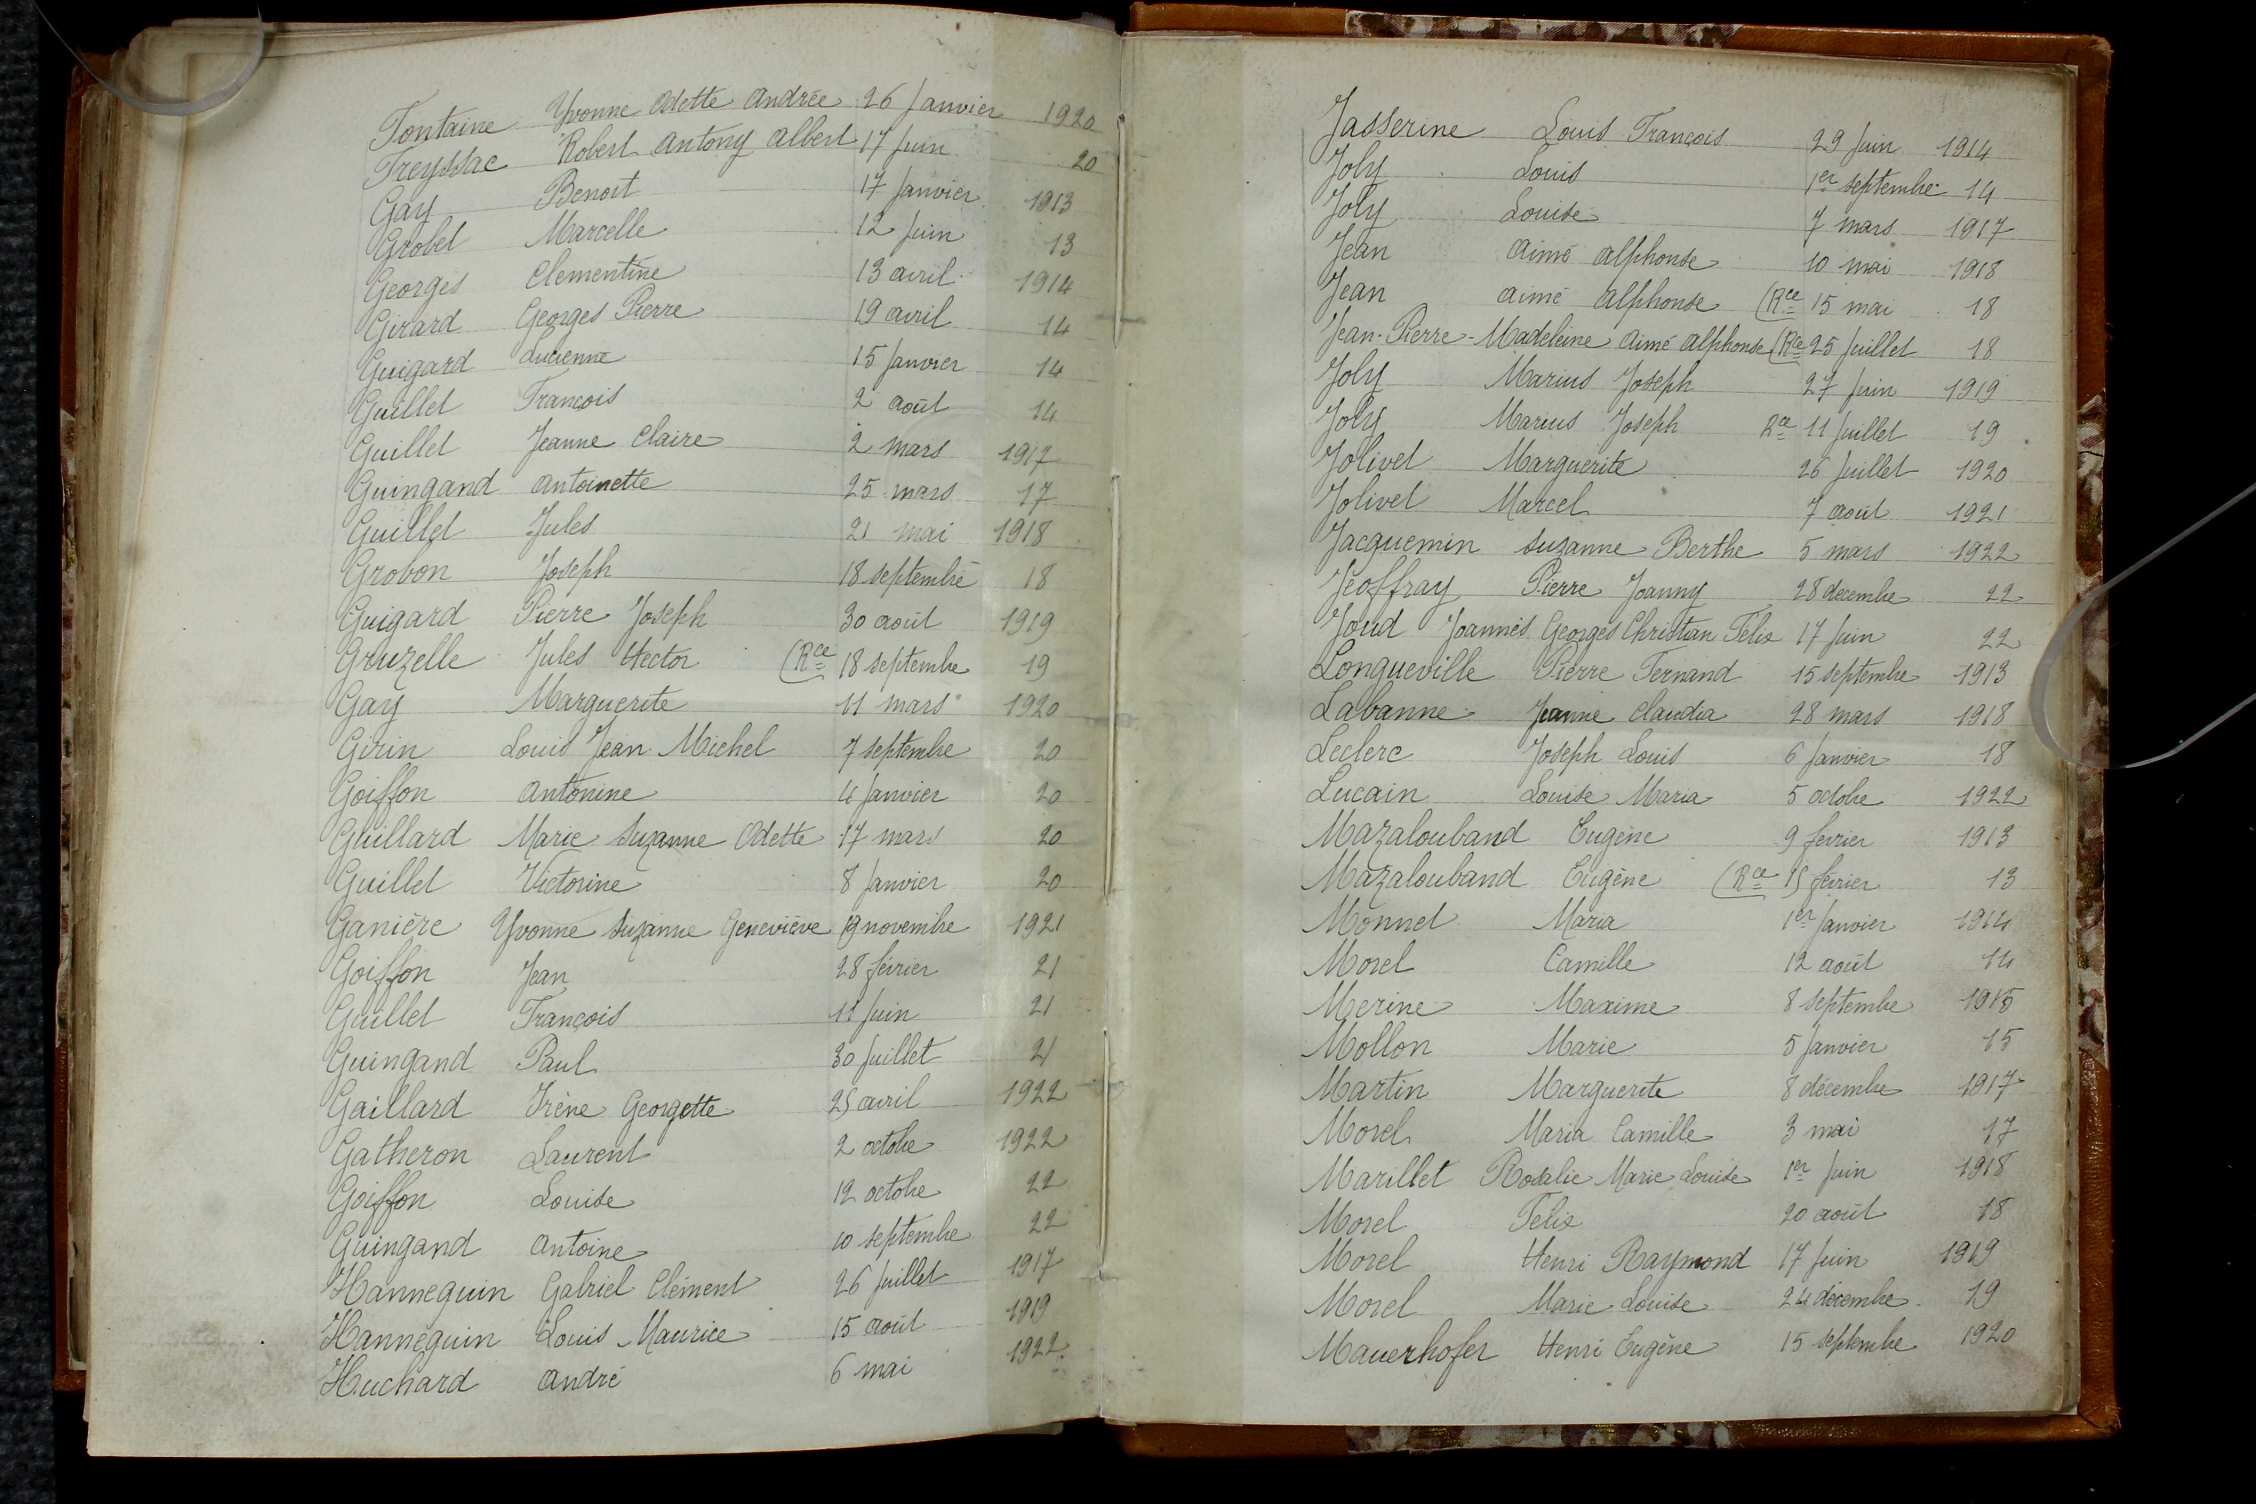 Fontaine Yvonne Odette Andrée 26 Janvier 1920
Freyssac Robert Antony Albert 17 Juin 20
Gay Benoit 17 Janvier 1913
Grobet Marcelle 12 Juin 13
Georges Clementine 13 avril 1914
Girard Georges Pierre 19 avril 14
Guigard Lucienne 15 Janvier 14
Guillet François 2 août 14
Guillet Jeanne Claire 2 mars 1917
Guingand Antoinette 25 mars 17
Guillet Jules 21 mai 1918
Grobon Joseph 18 septembre 18
Guigard Pierre Joseph 30 août 1919
Gruzelle Jules Hector (Rce 18 septembre 19
Gay Marguerite 11 mars 1920
Girin Louis Jean Michel 7 septembre 20
Goiffon Antonine 4 Janvier 20
Guillard Marie Suzanne Odette 17 mars 20
Guillet Victorine 8 Janvier 20
Ganière Yvonne Suzanne Geneviève 19 novembre 1921
Goiffon Jean 28 février 21
Guillet François 11 Juin 21
Guingand Paul 30 Juillet 21
Gaillard Irène Georgette 25 avril 1922
Gatheron Laurent 2 octobre 1922
Goiffon Louise 12 octobre 22
Guingand Antoine 10 septembre 22
Hannequin Gabriel Clément 26 Juillet 1917
Hannequin Louis Maurice 15 août 1919
Huchard André 6 mai 1922
Jasserine Louis François 29 Juin 1914
Joly Louis 1er septembre 14
Joly Louise 7 mars 1917
Jean Aimé Alphonse 10 mai 1918
Jean Aimé Alphonse (Rce 15 mai 18
Jean-Pierre-Madeleine Aimé Alphonse (Rce 25 Juillet 18
Joly Marius Joseph 27 Juin 1919
Joly Marius Joseph Rce 11 Juillet 19
Jolivet Marguerite 26 Juillet 1920
Jolivet Marcel 7 août 1921
Jacquemin Suzanne Berthe 5 mars 1922
Jeoffray Pierre Joanny 28 décembre 22
Joud Joannès Georges Christian Félix 17 Juin 22
Longueville Pierre Fernand 15 septembre 1913
Labanne Jeanne Claudia 28 mars 1918
Leclerc Joseph Louis 6 Janvier 18
Lucain Louise Maria 5 octobre 1922
Mazalouband Eugène 9 février 1913
Mazalouband Eugène (Rce 15 février 13
Monnet Maria 1er Janvier 1914
Morel Camille 12 août 14
Merine Maxime 8 septembre 1915
Mollon Marie 5 Janvier 15
Martin Marguerite 8 décembre 1917
Morel Maria Camille 3 mai 17
Marillet Rosalie Marie Louise 1er Juin 1918
Morel Felix 20 août 18
Morel Henri Raymond 17 Juin 1919
Morel Marie Louise 24 décembre 19
Mauerhofer Henri Eugène 15 septembre 1920